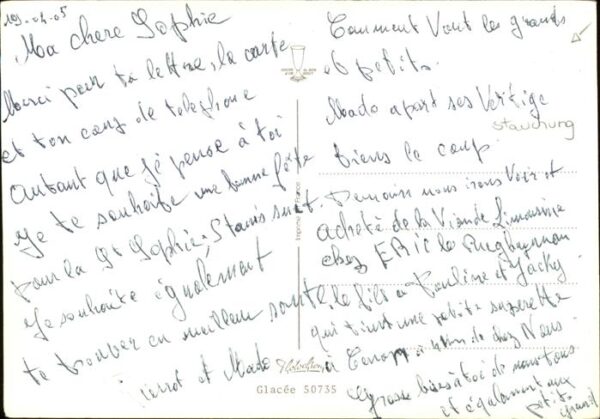 Ma chere Sophie
Merci pour ta lettre, la carte
et ton coup de telephone
autant que je pense à toi
Je te souhaite une bonne fête
pour la St Sophie,
Je souhaite également
te trouver en meilleur santé
et Mado
Glacée 50735
Imprimé en France
Comment Vont les grands
et petits.
Mado apart ses Vertige
stauchung
tiens le coup.
nous irons Voir et
acheté de la Viande Limousine
chez ERIC le Rugbyman
le fils a Pauline et Jacky
qui tient une petite superette
à de chez Nous.
Grosse bises à toi de nous tous
et également aux
petits grand